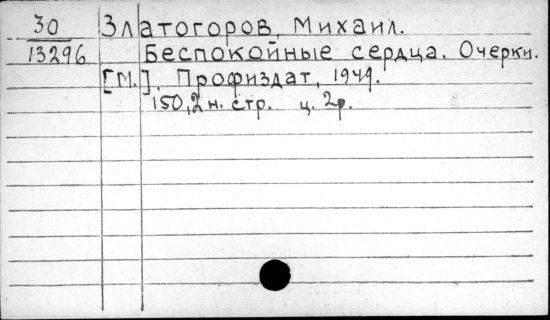 30 Златогоров, Михаил.
13296 Беспокойные сердца. Очерки.
[М.], Профиздат, 1949.
150,2 н. стр. ц. 2р.